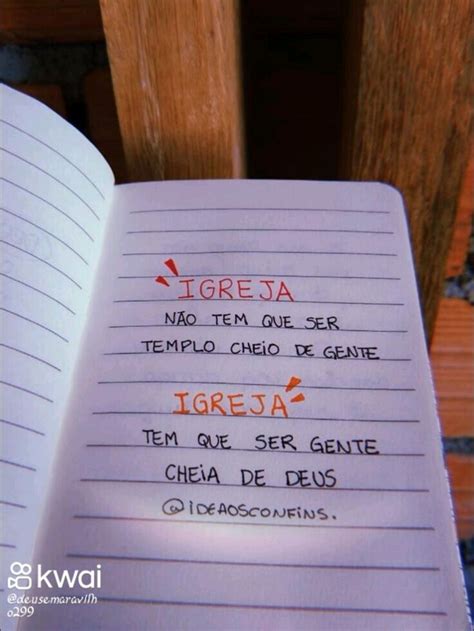 IGREJA
NÃO TEM QUE SER
TEMPLO CHEIO DE GENTE
IGREJA
TEM QUE SER GENTE
CHEIA DE DEUS
@IDEAOSCONFINS.
kwai
@deusemaravilh
o299